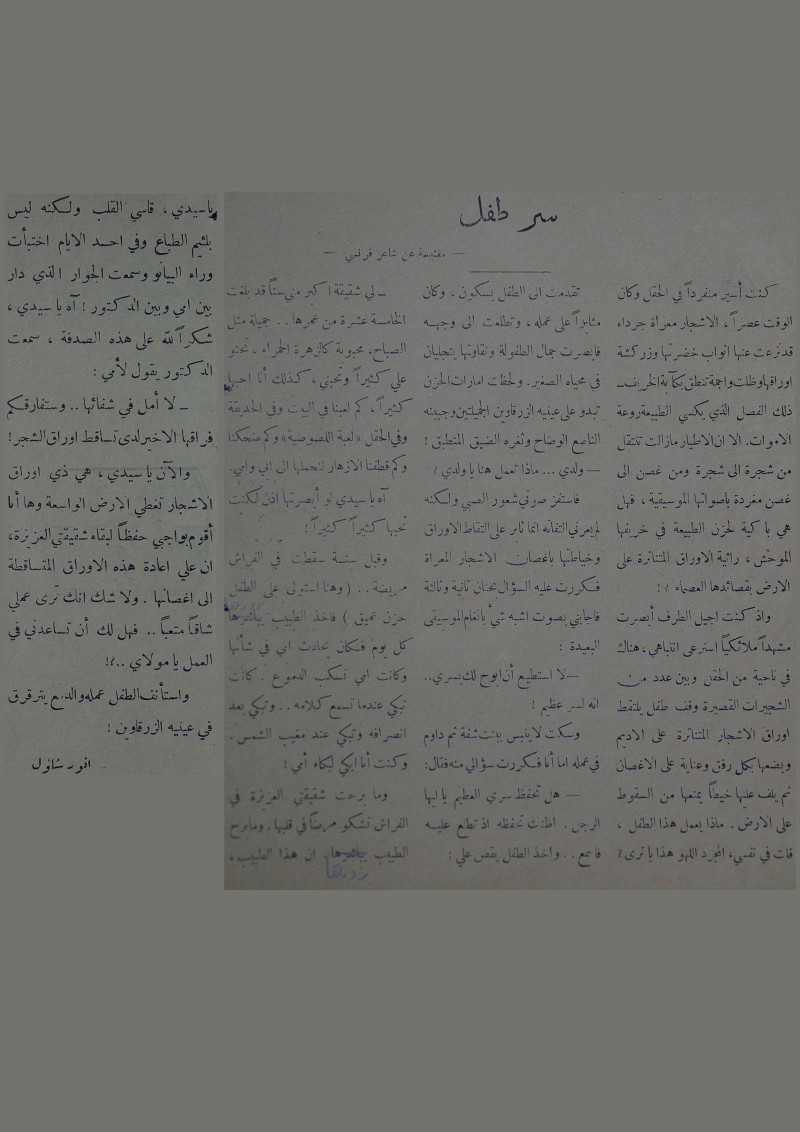 سر طفل
— مقتبسة عن شاعر فرنسي —
كنت أسير منفرداً في الحقل وكان
الوقت عصراً ، الاشجار معراة جرداء
قد نزعت عنها اثواب خضرتها وزركشة
اوراقها وظلت واجمة تنطق بكآبة الخريف —
ذلك الفصل الذي يكسي الطبيعة روعة
الاموات . الا ان الاطيار مازالت تنتقل
من شجرة الى شجرة ومن غصن الى
غصن مغردة باصواتها الموسيقية ، فهل
هي باكية لحزن الطبيعة في خريفها
الموحش ، راثية الاوراق المتناثرة على
الارض بقصائدها العصماء ؟ !
واذ كنت اجيل الطرف أبصرت
مشهداً ملائكياً استرعى انتباهي : هناك
في ناحية من الحقل وبين عدد من
الشجيرات القصيرة وقف طفل يلتقط
اوراق الاشجار المتناثرة على الاديم
ويضعها بكل رفق وعناية على الاغصان
ثم يلف عليها خيطاً يمنعها من السقوط
على الارض . ماذا يعمل هذا الطفل ،
قلت في نفسي ، المجرد اللهو هذا يا ترى ؟
تقدمت الى الطفل بسكون ، وكان
مثابراً على عمله ، وتطلعت الى وجهه
فابصرت جمال الطفولة ونقاوتها يتجليان
في محياه الصغير . ولحظت امارات الحزن
تبدو على عينيه الزرقاوين الجميلتين وجبينه
الناصع الوضاح وثغره الضيق المنطبق !
— ولدي ... ماذا تعمل هنا يا ولدي ؟
فاستفز صوتي شعور الصبي ولكنه
لم يعرني التفاته انما ثابر على التقاط الاوراق
وخياطتها باغصان الاشجار المعراة
فكررت عليه السؤال بحنان ثانية وثالثة
فاجابني بصوت اشبه شيء بانغام الموسيقى
البعيدة :
— لا استطيع أن ابوح لك بسري ..
انه لسر عظيم !
وسكت لا ينبس ببنت شفة ثم داوم
في عمله اما أنا فكررت سؤالي منه فقال :
— هل تحفظ سري العظيم يا ايها
الرجل . اظنك تحفظه اذ تطلع عليه
فاسمع . . واخذ الطفل يقص علي :
— لي شقيقة اكبر مني سناً قد بلغت
الخامسة عشرة من عمرها . . جميلة مثل
الصباح ، محبوبة كالزهرة الحمراء ، تحنو
علي كثيراً وتحبني ، كذلك أنا احبها
كثيراً ، كم لعبنا في البيت وفي الحديقة
وفي الحقل « لعبة اللصوصية » وكم ضحكنا
وكم قطفنا الازهار لنحملها الى ابي وامي .
آه يا سيدي لو أبصرتها اذن لكنت
تحبها كثيراً كثيراً !
وقبل سنة سقطت في الفراش
مريضة . . ( وهنا استولى على الطفل
حزن عميق ) فاخذ الطبيب
كل يوم فكان يحادث امي في شأنها
وكانت امي تسكب الدموع . كانت
تبكي عندما تسمع كلامه . . وتبكي بعد
انصرافه وتبكي عند مغيب الشمس .
وكنت أنا ابكي لبكاء أمي !
وما برحت شقيقتي العزيزة في
الفراش تشكو مرضاً في قلبها . ومابرح
الطبيب . ان هذا الطبيب ،
ياسيدي ، قاسي القلب ولكنه ليس
بلئيم الطباع وفي احد الايام اختبأت
وراء البيانو وسمعت الحوار الذي دار
بين امي وبين الدكتور ! آه يا سيدي ،
شكراً لله على هذه الصدفة ، سمعت
الدكتور يقول لأمي :
— لا أمل في شفائها . . وستفارقكم
فراقها الاخير لدى تساقط اوراق الشجر !
والآن يا سيدي ، هي ذي اوراق
الاشجار تغطي الارض الواسعة وها أنا
أقوم بواجبي حفظاً لبقاء شقيقتي العزيزة ،
ان علي اعادة هذه الاوراق المتساقطة
الى اغصانها . ولا شك انك ترى عملي
شاقاً متعباً . . فهل لك أن تساعدني في
العمل يا مولاي ..؟!
واستأنف الطفل عمله والدمع يترقرق
في عينيه الزرقاوين !
انور شاؤل